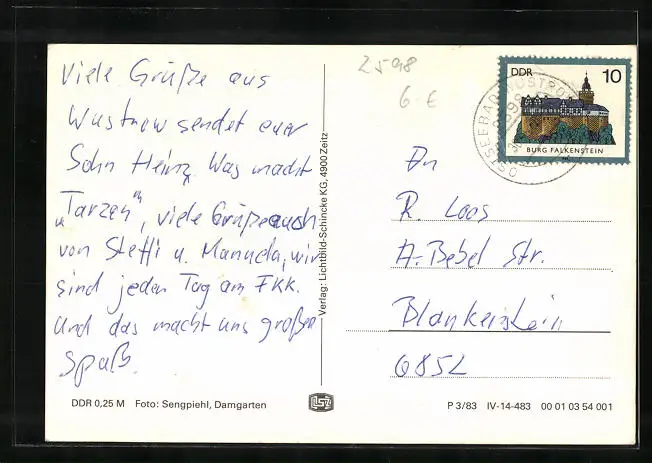 Viele Grüße aus
Wustrow sendet euer
Sohn Heinz. Was macht
„Tarzan", viele Grüße auch
von Steffi u. Manuela, wir
sind jeden Tag am FKK.
Und das macht uns großen
Spaß.
DDR 0,25 M Foto: Sengpiehl, Damgarten
Verlag: Lichtbild-Schincke KG, 4900 Zeitz
2598
6 €
DDR 10
BURG FALKENSTEIN
OSTSEEBAD WUSTROW
An
R. Loos
A.-Bebel Str.
Blankenstein
6852
P 3/83 IV-14-483 00 01 03 54 001